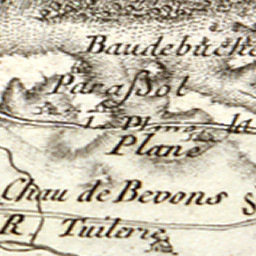 Baudebuche
Parassot
Le Plan la
Plane
Chau de Bevons S
R Tuilerie